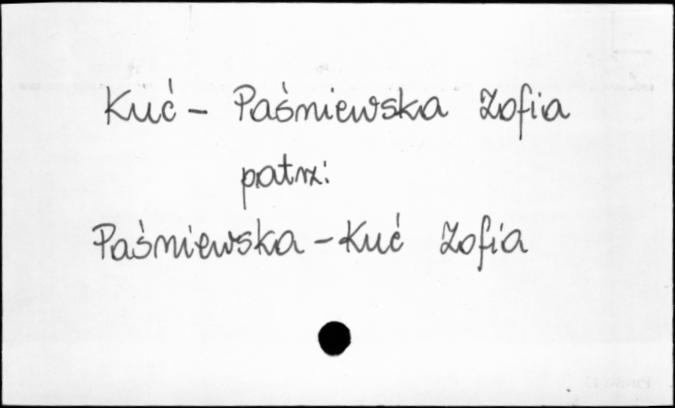 Kuć - Paśniewska Zofia
patrz:
Paśniewska - Kuć Zofia